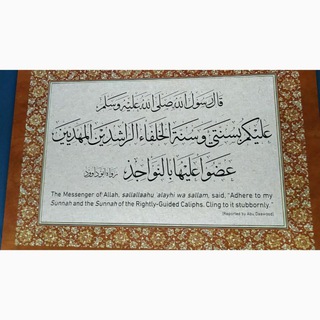 قال رسول الله صلى الله عليه وسلم
عليكم بسنتي وسنة الخلفاء الراشدين المهديين
عضوا عليها بالنواجذ رواه أبو داوود
The Messenger of Allah, sallallaahu 'alayhi wa sallam, said, "Adhere to my
Sunnah and the Sunnah of the Rightly-Guided Caliphs. Cling to it stubbornly."
(Reported by Abu Dawood)